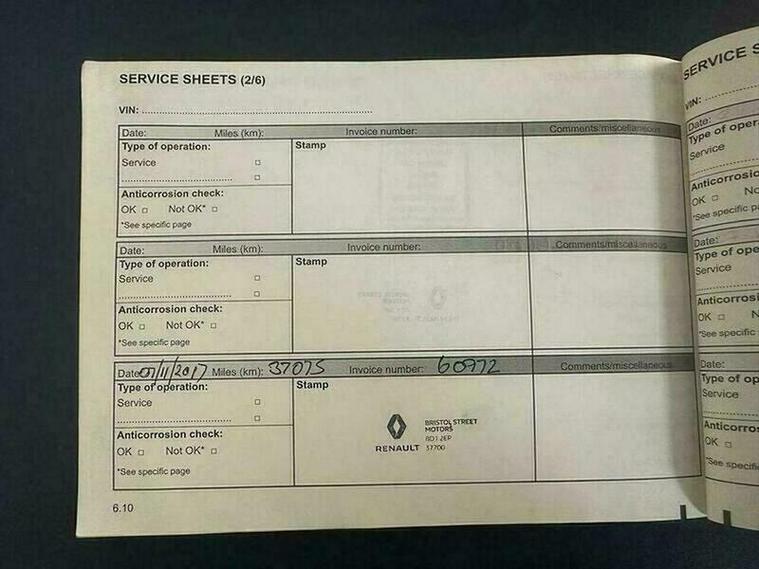 SERVICE SHEETS (2/6)
VIN:
Date: Miles (km): Invoice number: Comments/miscellaneous
Type of operation: Stamp
Service
Anticorrosion check:
OK □ Not OK* □
*See specific page
Date: Miles (km): Invoice number: Comments/miscellaneous
Type of operation: Stamp
Service
Anticorrosion check:
OK □ Not OK* □
*See specific page
Date: 07/11/2017 Miles (km): 37075 Invoice number: 60972 Comments/miscellaneous
Type of operation: Stamp
Service
Anticorrosion check:
OK □ Not OK* □
*See specific page
BRISTOL STREET
MOTORS
BD1 2EP
RENAULT 37700
6.10
SERVICE S
VIN:
Date:
Type of oper
Service
Anticorrosio
OK □ No
*See specific p
Date:
Type of ope
Service
Anticorrosi
OK □ N
*See specific
Date:
Type of op
Service
Anticorros
OK □
*See specifi